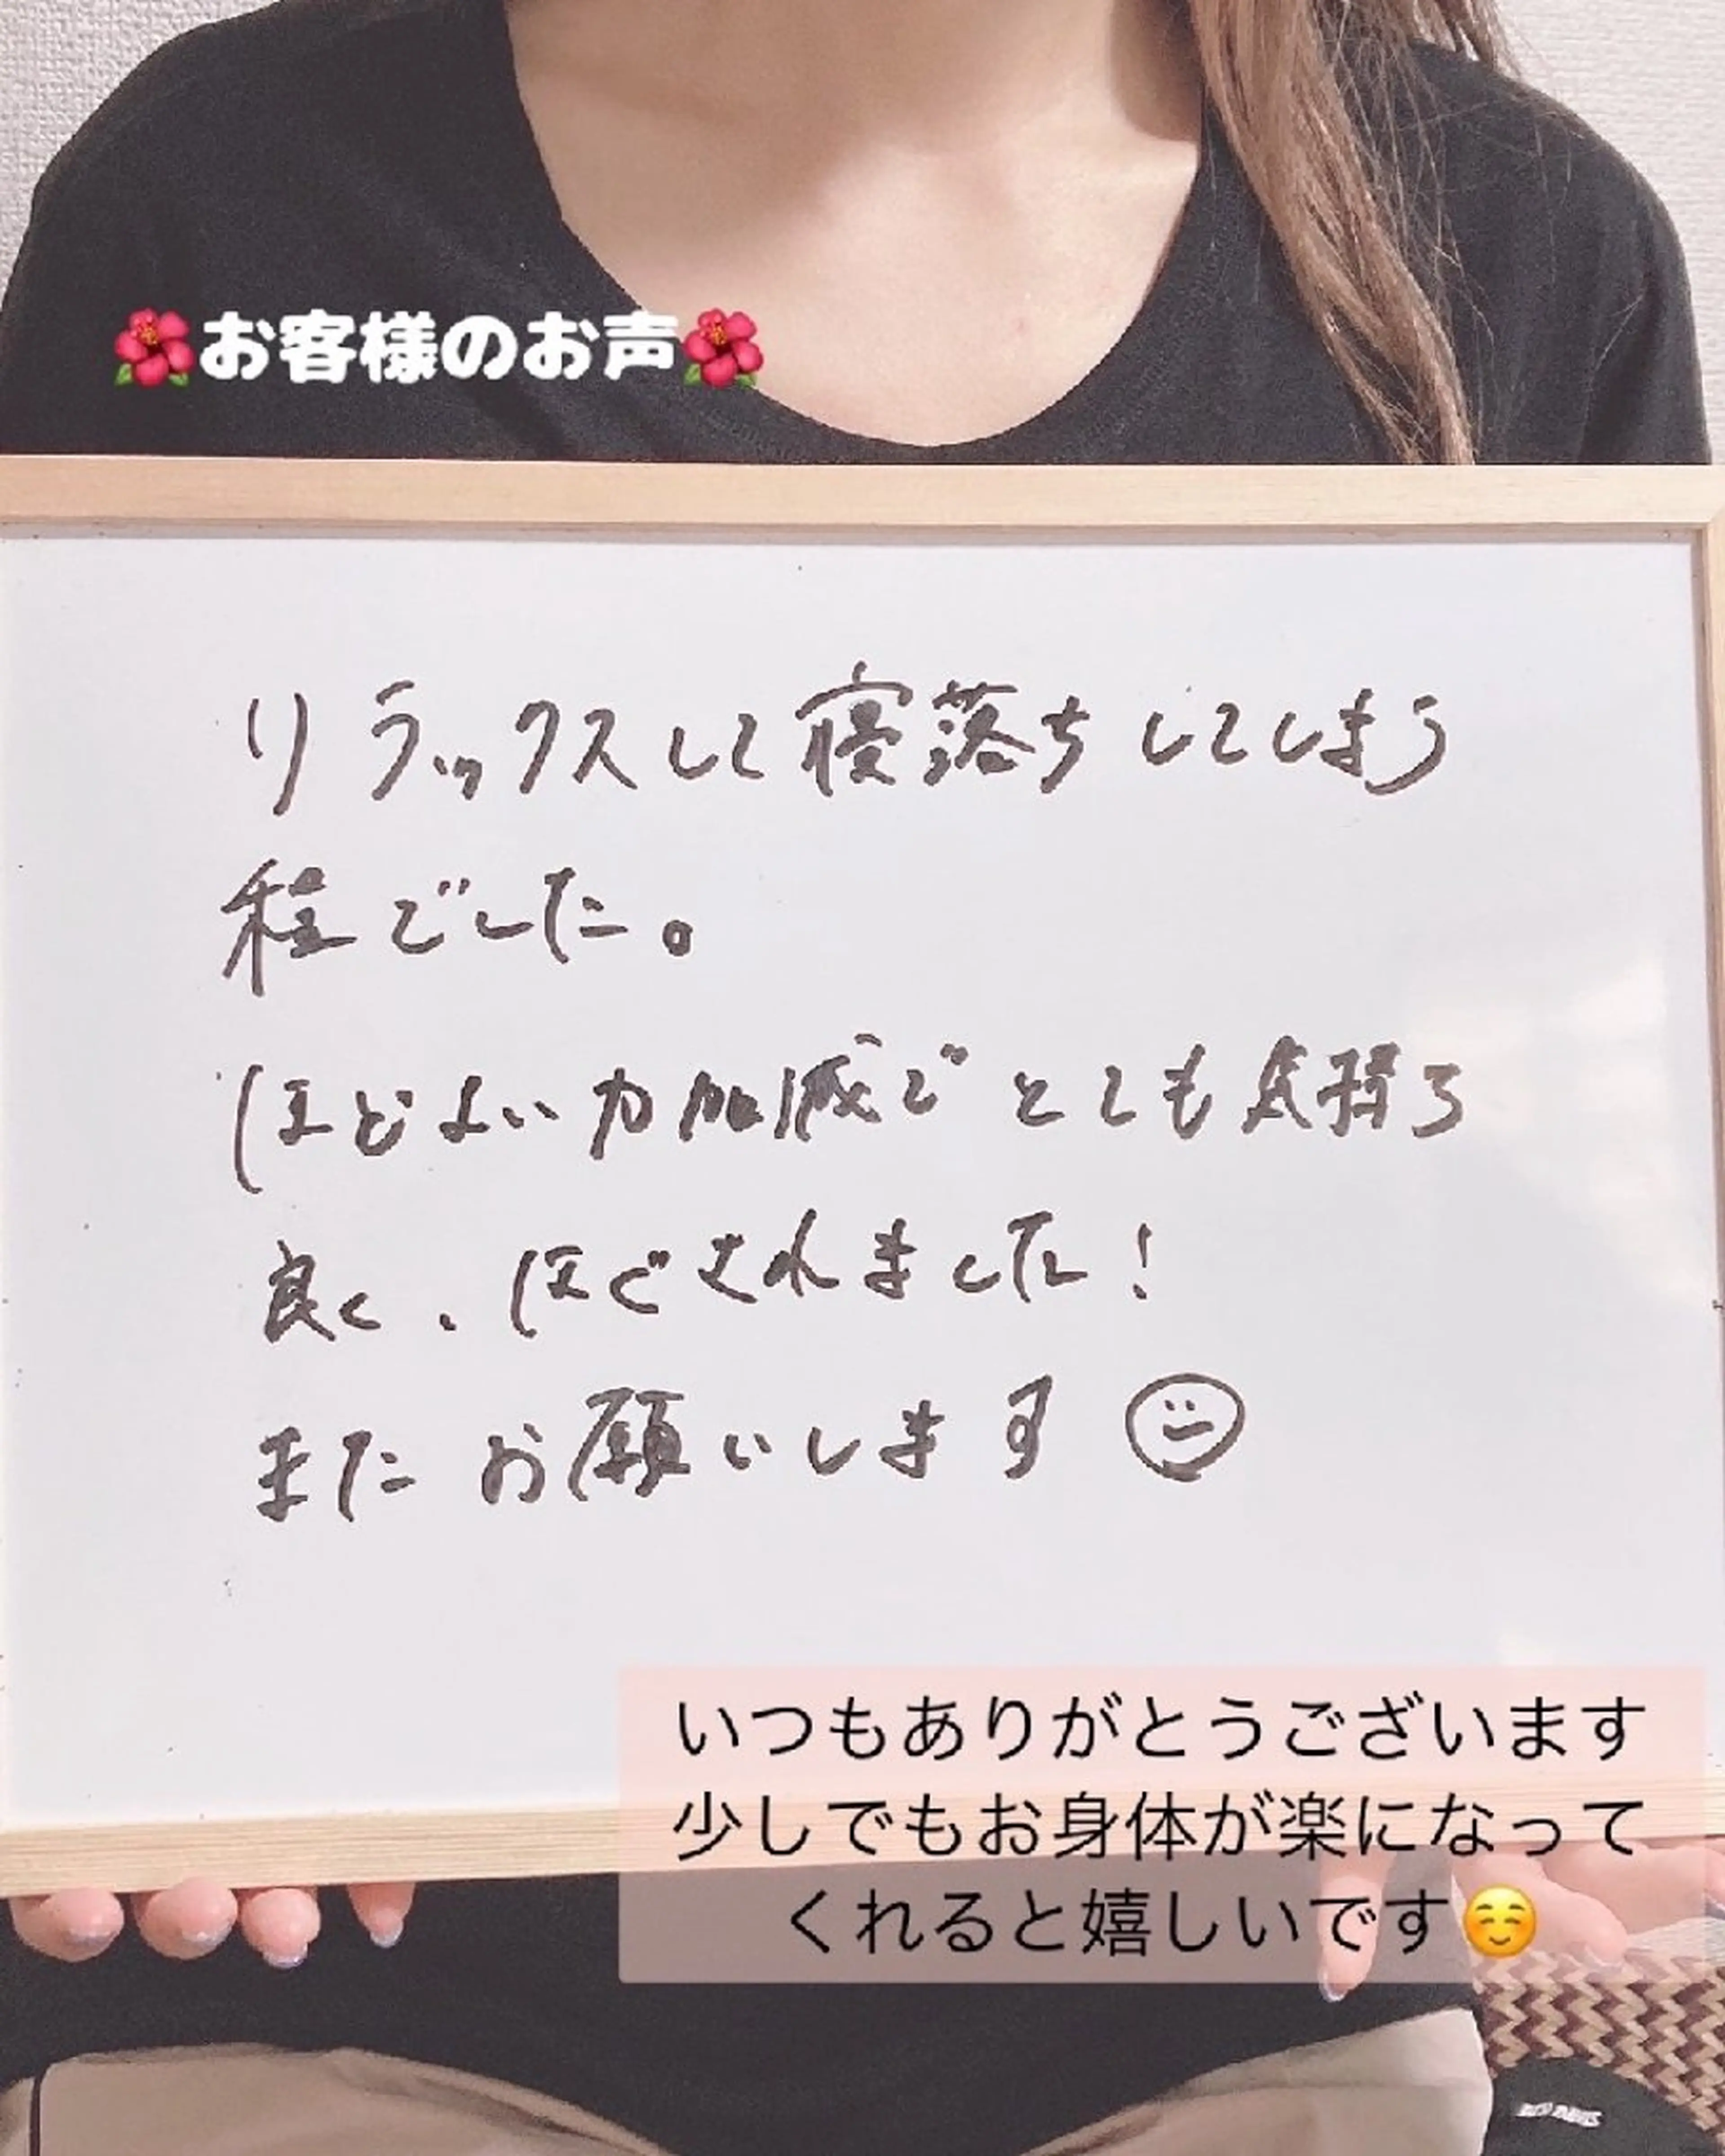 🌺お客様のお声🌺
リラックスして寝落ちしてしまう
程でした。
ほどよい力加減でとても気持ち
良く、ほぐされました!
またお願いします
いつもありがとうございます
少しでもお身体が楽になって
くれると嬉しいです☺️